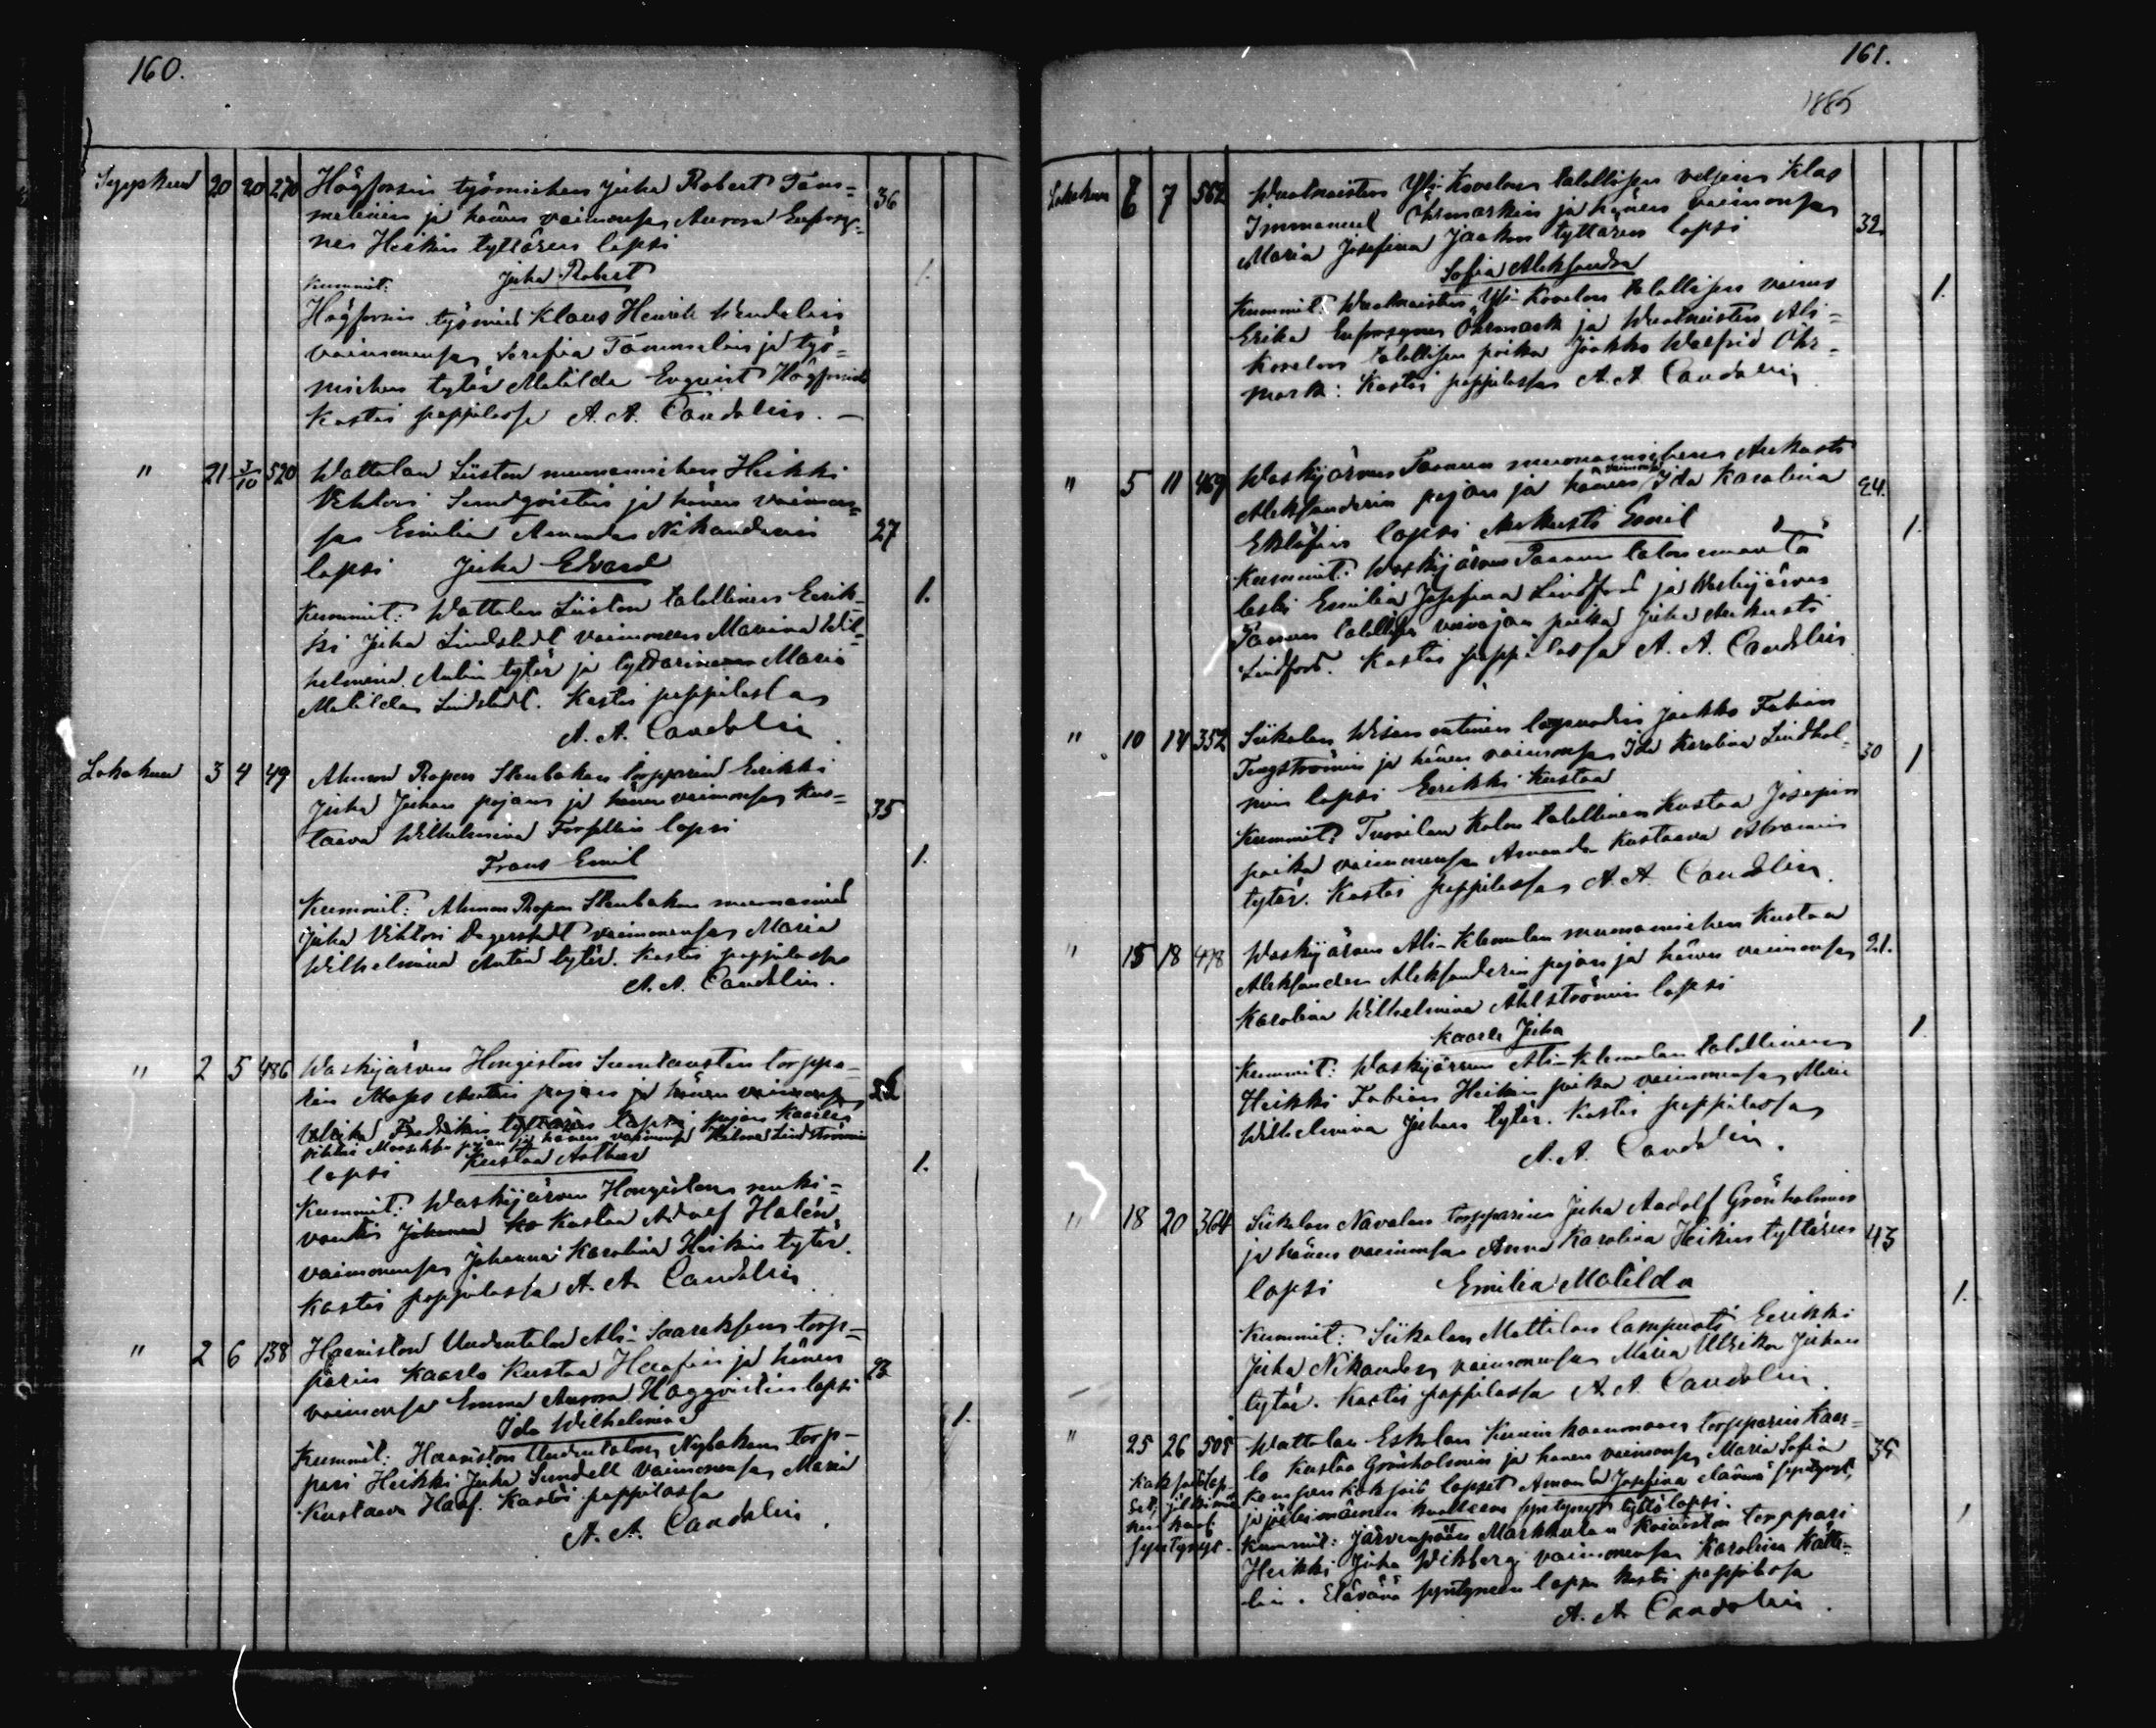 160.
Syyskuu 20 20 270 Högforsin työmiehen Juha Robert Tam= 36
melinin ja hänen vaimonsa Aurora Eufrosy=
nes Heikin tyttären lapsi
Juha Robert
Kummit:
Högforsin työmies Klaus Henrik Wendelin
vaimonensa Serafia Tammelin ja työ=
miehen tytär Matilda Enqvist Högforsista
Kastoi pappilassa A. A. Candolin. —
" 21 3/10 520 Wattolan Siiston muonamiehen Heikki
Viktori Sundqvistin ja hänen vaimon=
sa Emilia Amanda Nikanderin 27
lapsi Juha Edvard
Kummit: Wattolan Siiston talollinen Eerik= 1.
ki Juha Lindstedt vaimoneen Maria Wil=
helmina Antin tytär ja tyttärinensa Maria
Matilda Lindstedt. Kastoi pappilassa
A. A. Candolin.
Lokakuu 3 4 49 Ahmoon Ropon Stenbakan torpparin Eerikki
Juha Juhan pojan ja hänen vaimonsa Kus= 35
taava Wilhelmina Forsellin lapsi
Frans Emil 1.
Kummit: Ahmoon Ropon Stenbakan muonamies
Juha Viktori Dagerstedt vaimonensa Maria
Wilhelmina Antin tytär. Kastoi pappilassa
A. A. Candolin.
" 2 5 486 Waskijärven Hongiston Sundausten torppa=
rin Antin pojan ja hänen vaimonsa
Ulrika Fredrikin tyttären lapsi pojan Kaarlo
Viktori pojan ja hänen vaimonsa Hilma Lindströmin
lapsi Kustaa Arthur 1.
Kummit: Waskijärven Hongiston
vouti Johanna Kustaa Adolf Halén
vaimonensa Johanna Karolina Heikin tytär.
Kastoi pappilassa A. A. Candolin
" 2 6 138 Haaviston Uudentalon Ali-Saareksen torp=
parin Kaarlo Kustaa Haafin ja hänen
vaimonsa Emma Aurora Haggqvistin lapsi
Ida Wilhelmina 1.
Kummit: Haaviston Uudentalon Nybakan torp=
pari Heikki Juha Sundell vaimonensa Maria
Kustaava Haaf. Kastoi pappilassa
A. A. Candolin.
161.
1885
Lokakuu 6 7 562 Wuolteisten Yli-Kovelon talollisen veljen Klas
Immanuel Öhrmarkin ja hänen vaimonsa 32
Maria Josefina Jaakon tyttären lapsi
Sofia Aleksandra
Kummit: Wuolteisten Yli-Kovelon talollisen vaimo 1.
Erika Eufrosyne Öhrmark ja Wuolteisten Ali=
Kovelon talollisen poika Jaakko Walfrid Öhr=
mark: Kastoi pappilassa A. A. Candolin
" 5 11 469 Waskijärven Paavun muonamiehen Aukusti
Aleksanderin pojan ja hänen vaimonsa Ida Karolina 24.
Eklöfin lapsi Aukusti Emil 1.
Kummit: Waskijärven Paavun talon emäntä
leski Emilia Josefina Lindfors ja Waskijärven
Paavun talollisen poika Juha Aukusti
Lindfors. Kastoi pappilassa A. A. Candolin
" 10 14 352 Siikalan lampuodin Jaakko Fabian
Tengströmin ja hänen vaimonsa Ida Karolina Lindhol= 30 1
min lapsi Eerikki Kustaa
Kummit: Tuorilan Kolon talollinen Kustaa Josepin
poika vaimonensa Amanda Kustaava Abramin
tytär. Kastoi pappilassa A. A. Candolin.
" 15 18 478 Waskijärven Ali-Klemelan muonamiehen Kustaa
Aleksander Aleksanderin pojan ja hänen vaimonsa 21.
Karolina Wilhelmina Ahlströmin lapsi
Kaarlo Juha 1.
Kummit: Waskijärven Ali-Klemelan talollinen
Heikki Fabian Heikin poika vaimonensa Maria
Wilhelmina Juhan tytär. Kastoi pappilassa
A. A. Candolin.
" 18 20 364 Siikalan Navalan torpparin Juha Aadolf Grönholmin
ja hänen vaimonsa Anna Karolina Heikin tyttären 43
lapsi Emilia Matilda 1.
Kummit: Siikalan Mattilan lampuoti Eerikki
Juha Nikander vaimonensa Maria Ulrika Juhan
tytär. Kastoi pappilassa A. A. Candolin.
" 25 26 505 Wattolan Eskolan torpparin Kaar=
lo Kustaa Grönholmin ja hänen vaimonsa Maria Sofia 35
kaksois lapset Amanda Josefina elävänä syntynyt,
ja jälkimäinen kuolleena syntynyt tyttölapsi. 1
Kaksoislap=
set, jälkimäi=
nen kuol.
syntynyt.
Kummit: Järvenpään Markkulan Koiviston torppari
Heikki Juha Wikberg vaimonensa Karolina
Elävänä syntyneen lapsen kastoi pappilassa
A. A. Candolin.